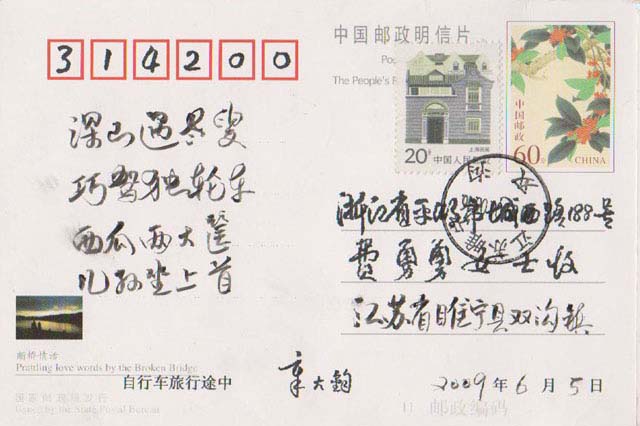 314200
中国邮政明信片
The People's
中国邮政
60分
CHINA
20分
中国人民
上海民居
深山遇叟
巧驾独轮车
西瓜两大筐
儿孙坐上首
浙江省平湖市城西路188号
费勇勇女士收
江苏省睢宁县双沟镇
断桥情话
Prattling love words by the Broken Bridge
自行车旅行途中
章大钧
2009年6月5日
国家邮政局发行
Issued by the State Postal Bureau
邮政编码